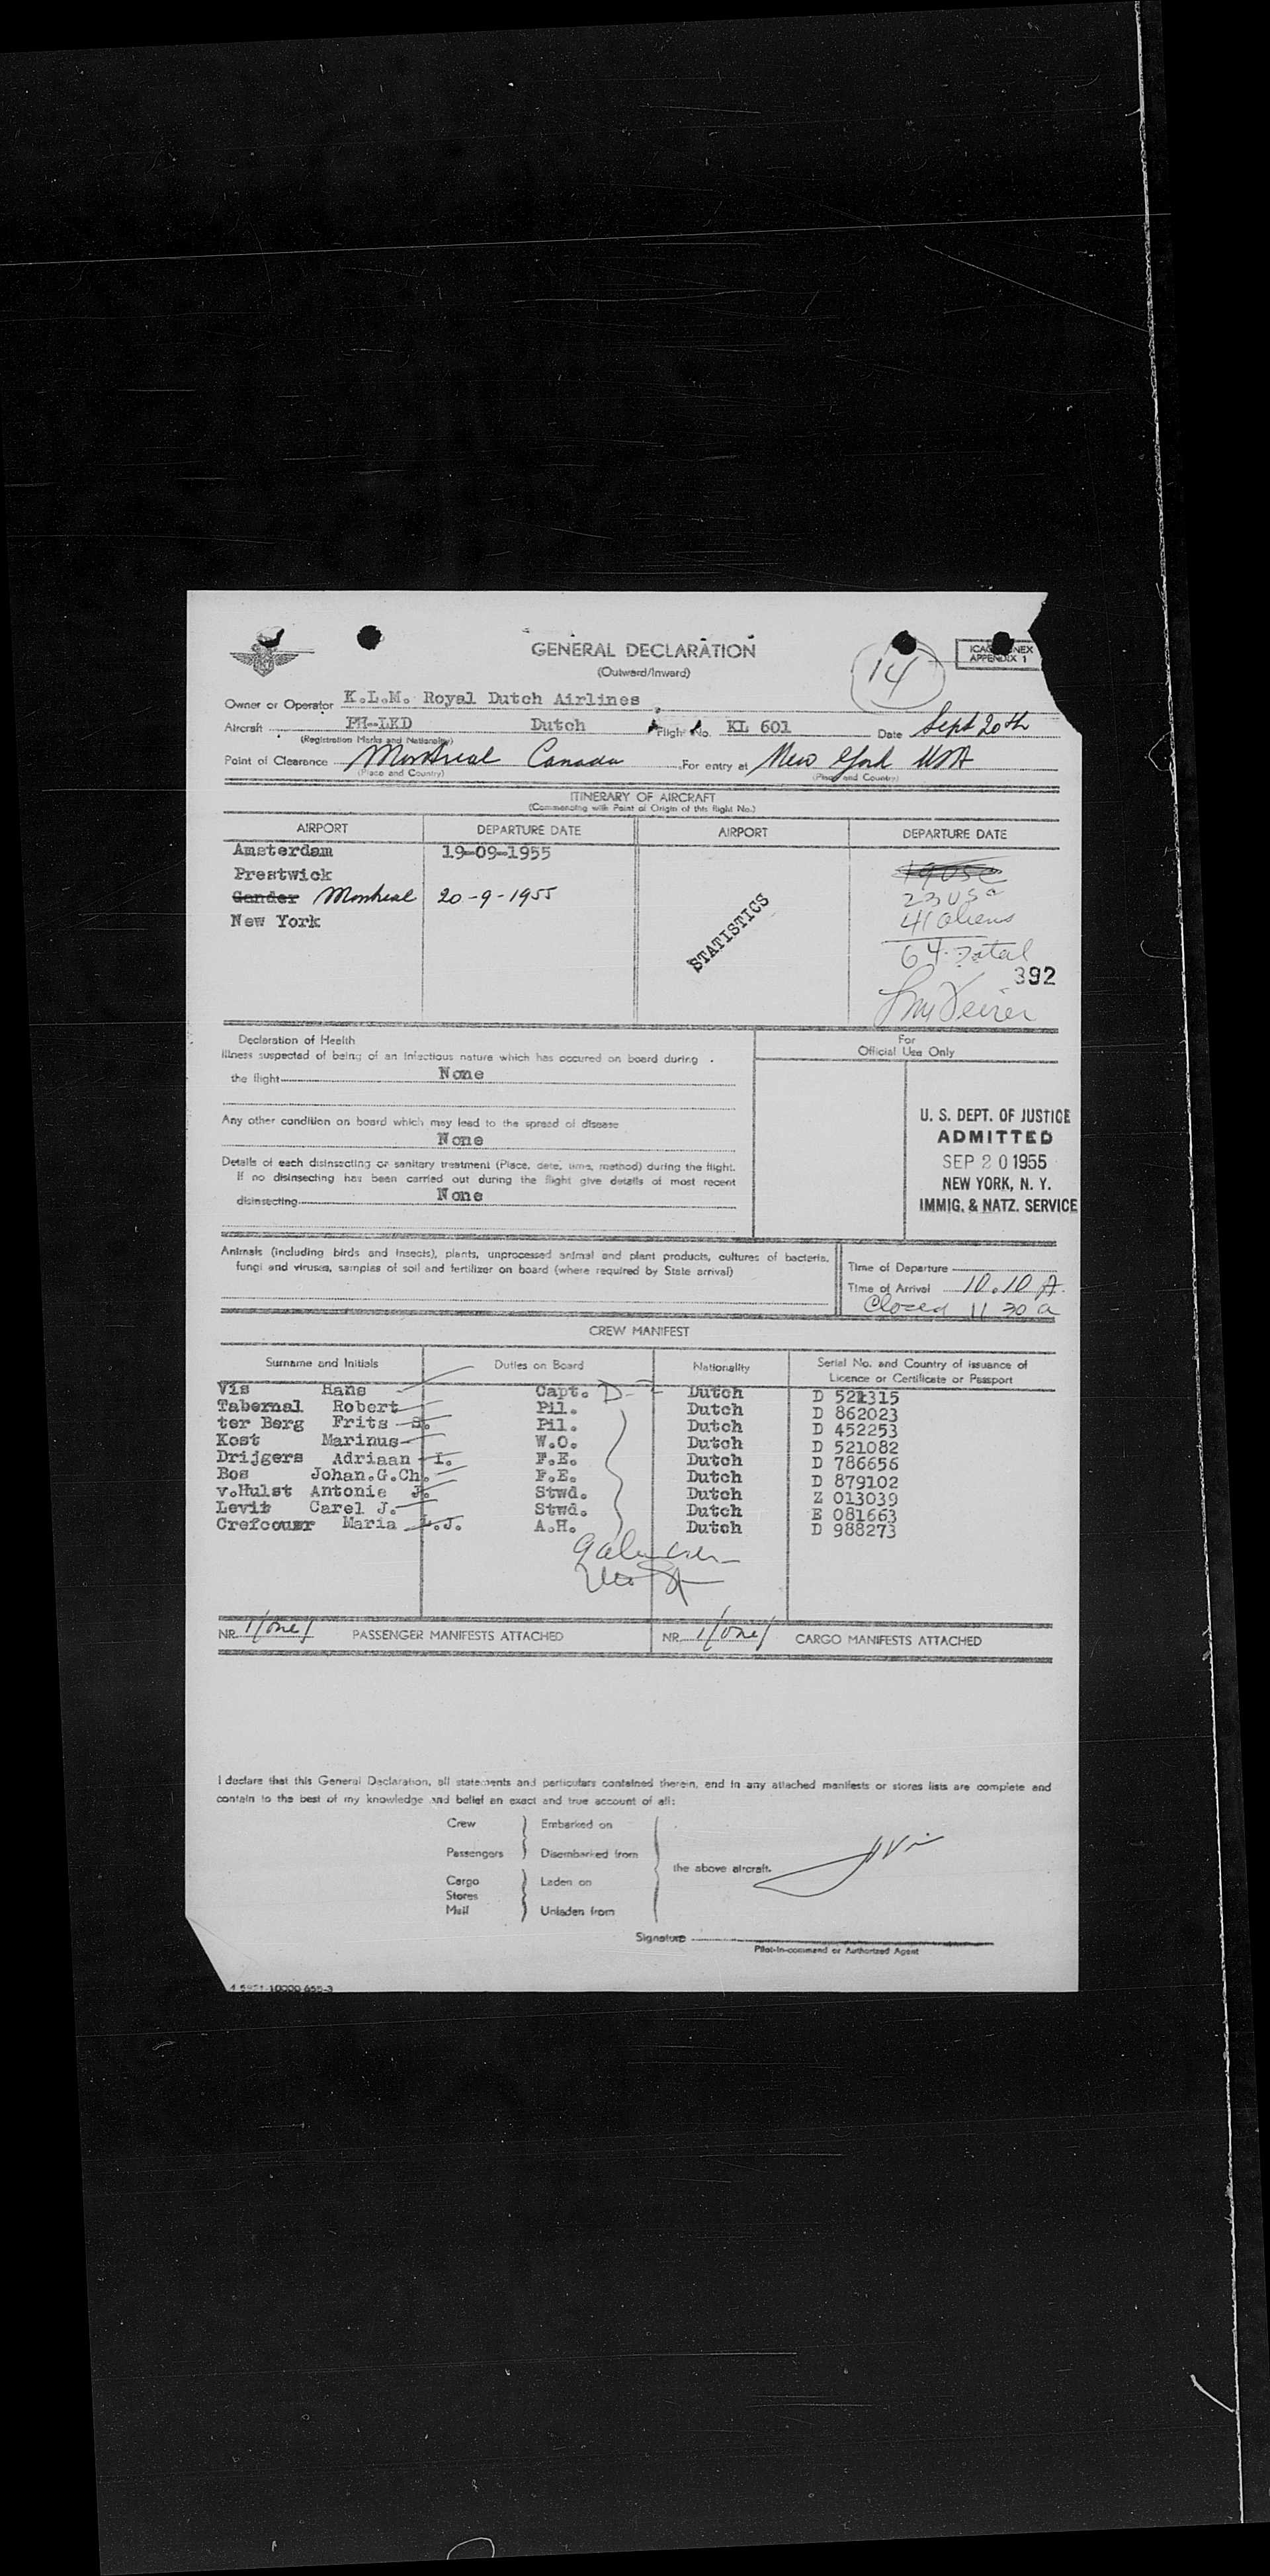 GENERAL DECLARATION
(Outward/Inward)
14
APPENDIX 1
Owner or Operator K.L.M. Royal Dutch Airlines
Aircraft PH-LKD Dutch Flight No. KL 601 Date Sept 20th
(Registration Marks and Nationality)
Point of Clearance Montreal Canada For entry at New York USA
(Place and Country) (Place and Country)
ITINERARY OF AIRCRAFT
(Commencing with Point of Origin of this flight No.)
AIRPORT DEPARTURE DATE AIRPORT DEPARTURE DATE
Amsterdam 19-09-1955
Prestwick
Gander Montreal 20-9-1955
New York
STATISTICS
23 usa
41 aliens
64 Total
392
Declaration of Health
Illness suspected of being of an infectious nature which has occured on board during
the flight None
Any other condition on board which may lead to the spread of disease
None
Details of each disinsecting or sanitary treatment (Place, date, time, method) during the flight.
If no disinsecting has been carried out during the flight give details of most recent
disinsecting None
For
Official Use Only
U. S. DEPT. OF JUSTICE
ADMITTED
SEP 20 1955
NEW YORK, N. Y.
IMMIG. & NATZ. SERVICE
Animals (including birds and insects), plants, unprocessed animal and plant products, cultures of bacteria,
fungi and viruses, samples of soil and fertilizer on board (where required by State arrival)
Time of Departure
Time of Arrival 10.10 A.
Closed 11 30 a
CREW MANIFEST
Surname and Initials Duties on Board Nationality Serial No. and Country of issuance of
Licence or Certificate or Passport
Vis Hans Capt. Dutch D 521315
Tabernal Robert Pil. Dutch D 862023
ter Berg Frits S. Pil. Dutch D 452253
Kost Marinus W.O. Dutch D 521082
Drijgers Adriaan I. F.E. Dutch D 786656
Bos Johan.G.Ch. F.E. Dutch D 879102
v.Hulst Antonie J. Stwd. Dutch Z 013039
Levit Carel J. Stwd. Dutch E 081663
Crefcouer Maria L.J. A.H. Dutch D 988273
NR. 1/one/ PASSENGER MANIFESTS ATTACHED NR. 1/one/ CARGO MANIFESTS ATTACHED
I declare that this General Declaration, all statements and particulars contained therein, and in any attached manifests or stores lists are complete and
contain to the best of my knowledge and belief an exact and true account of all:
Crew Embarked on
Passengers Disembarked from
the above aircraft.
Cargo Laden on
Stores
Mail Unladen from
Signature
Pilot-in-command or Authorized Agent